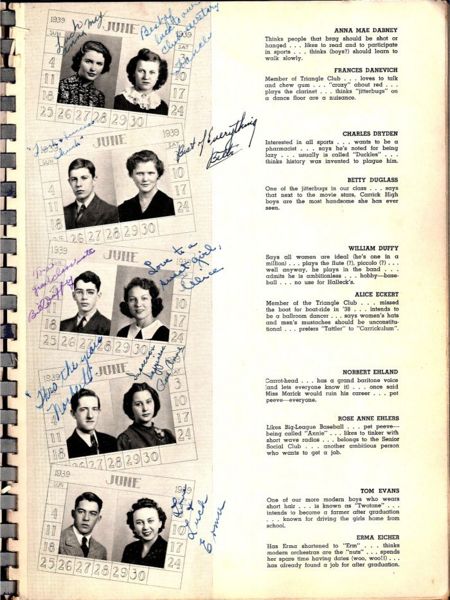 1939
JUNE
to my
Best of
luck to our
secretary
Frances
4
11
18
10
17
24
25 26 27 28 29 30
ANNA MAE DABNEY
Thinks people that brag should be shot or
hanged . . . likes to read and to participate
in sports . . . thinks (boys?) should learn to
walk slowly.
FRANCES DANEVICH
Member of Triangle Club . . . loves to talk
and chew gum . . . "crazy" about red . . .
plays the clarinet . . . thinks "jitterbugs" on
a dance floor are a nuisance.
JUNE
1939
Best of everything
Betts
4
11
18
26 27 28 29 30
CHARLES DRYDEN
Interested in all sports . . . wants to be a
pharmacist . . . says he's noted for being
lazy . . . usually is called "Duckles" . . .
thinks history was invented to plague him.
BETTY DUGLASS
One of the jitterbugs in our class . . . says
that next to the movie stars, Carrick High
boys are the most handsome she has ever
seen.
1939
JUNE
Love to a
sweet girl,
Alice
Bill Duffy
10
17
24
26 27 28 29 30
WILLIAM DUFFY
Says all women are ideal (he's one in a
million) . . . plays the flute (?), piccolo (?) . . .
well anyway, he plays in the band . . .
admits he is ambitionless . . . hobby—base-
ball . . . no use for Halleck's.
ALICE ECKERT
Member of the Triangle Club . . . missed
the boat for boat-ride in '38 . . . intends to
be a ballroom dancer . . . says women's hats
and men's mustaches should be unconstitu-
tional . . . prefers "Tattler" to "Carrickulum".
4
11
3
10
17
24
27 28 29 30
NORBERT EHLAND
Carrot-head . . . has a grand baritone voice
(and lets everyone know it) . . . once said
Miss Merrick would ruin his career . . . pet
peeve—everyone.
ROSE ANNE EHLERS
Likes Big-League Baseball . . . pet peeve—
being called "Annie" . . . likes to tinker with
short wave radios . . . belongs to the Senior
Social Club . . . another ambitious person
who wants to got a job.
1939
JUNE
1939
Luck
Erma
4
11
18
24
25 26 27 28 29 30
TOM EVANS
One of our more modern boys who wears
short hair . . . is known as "Twotone" . . .
intends to become a farmer after graduation
. . . known for driving the girls home from
school.
ERMA EICHER
Has Erma shortened to "Erm" . . . thinks
modern orchestras are the "nuts" . . . spends
her spare time having dates (woo, woo!!) . . .
has already found a job for after graduation.